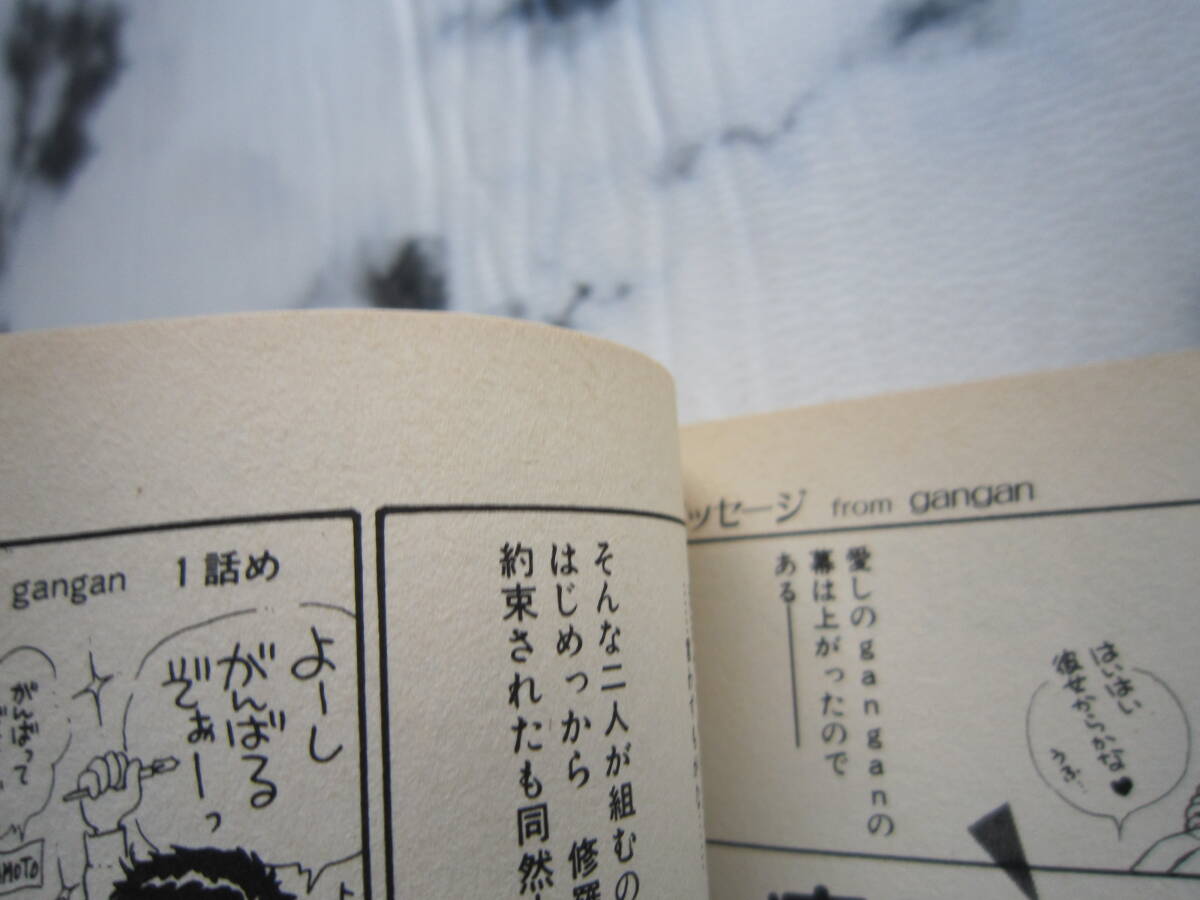 ッセージ from gangan
愛しのganganの
幕は上がったので
ある――
はいはい
彼女からかな♥
うふ…
そんな二人が組むの
はじめっから 修羅
約束されたも同然
gangan 1話め
よーし
がんばる
ぞぉーっ
がんばって
AMOTO